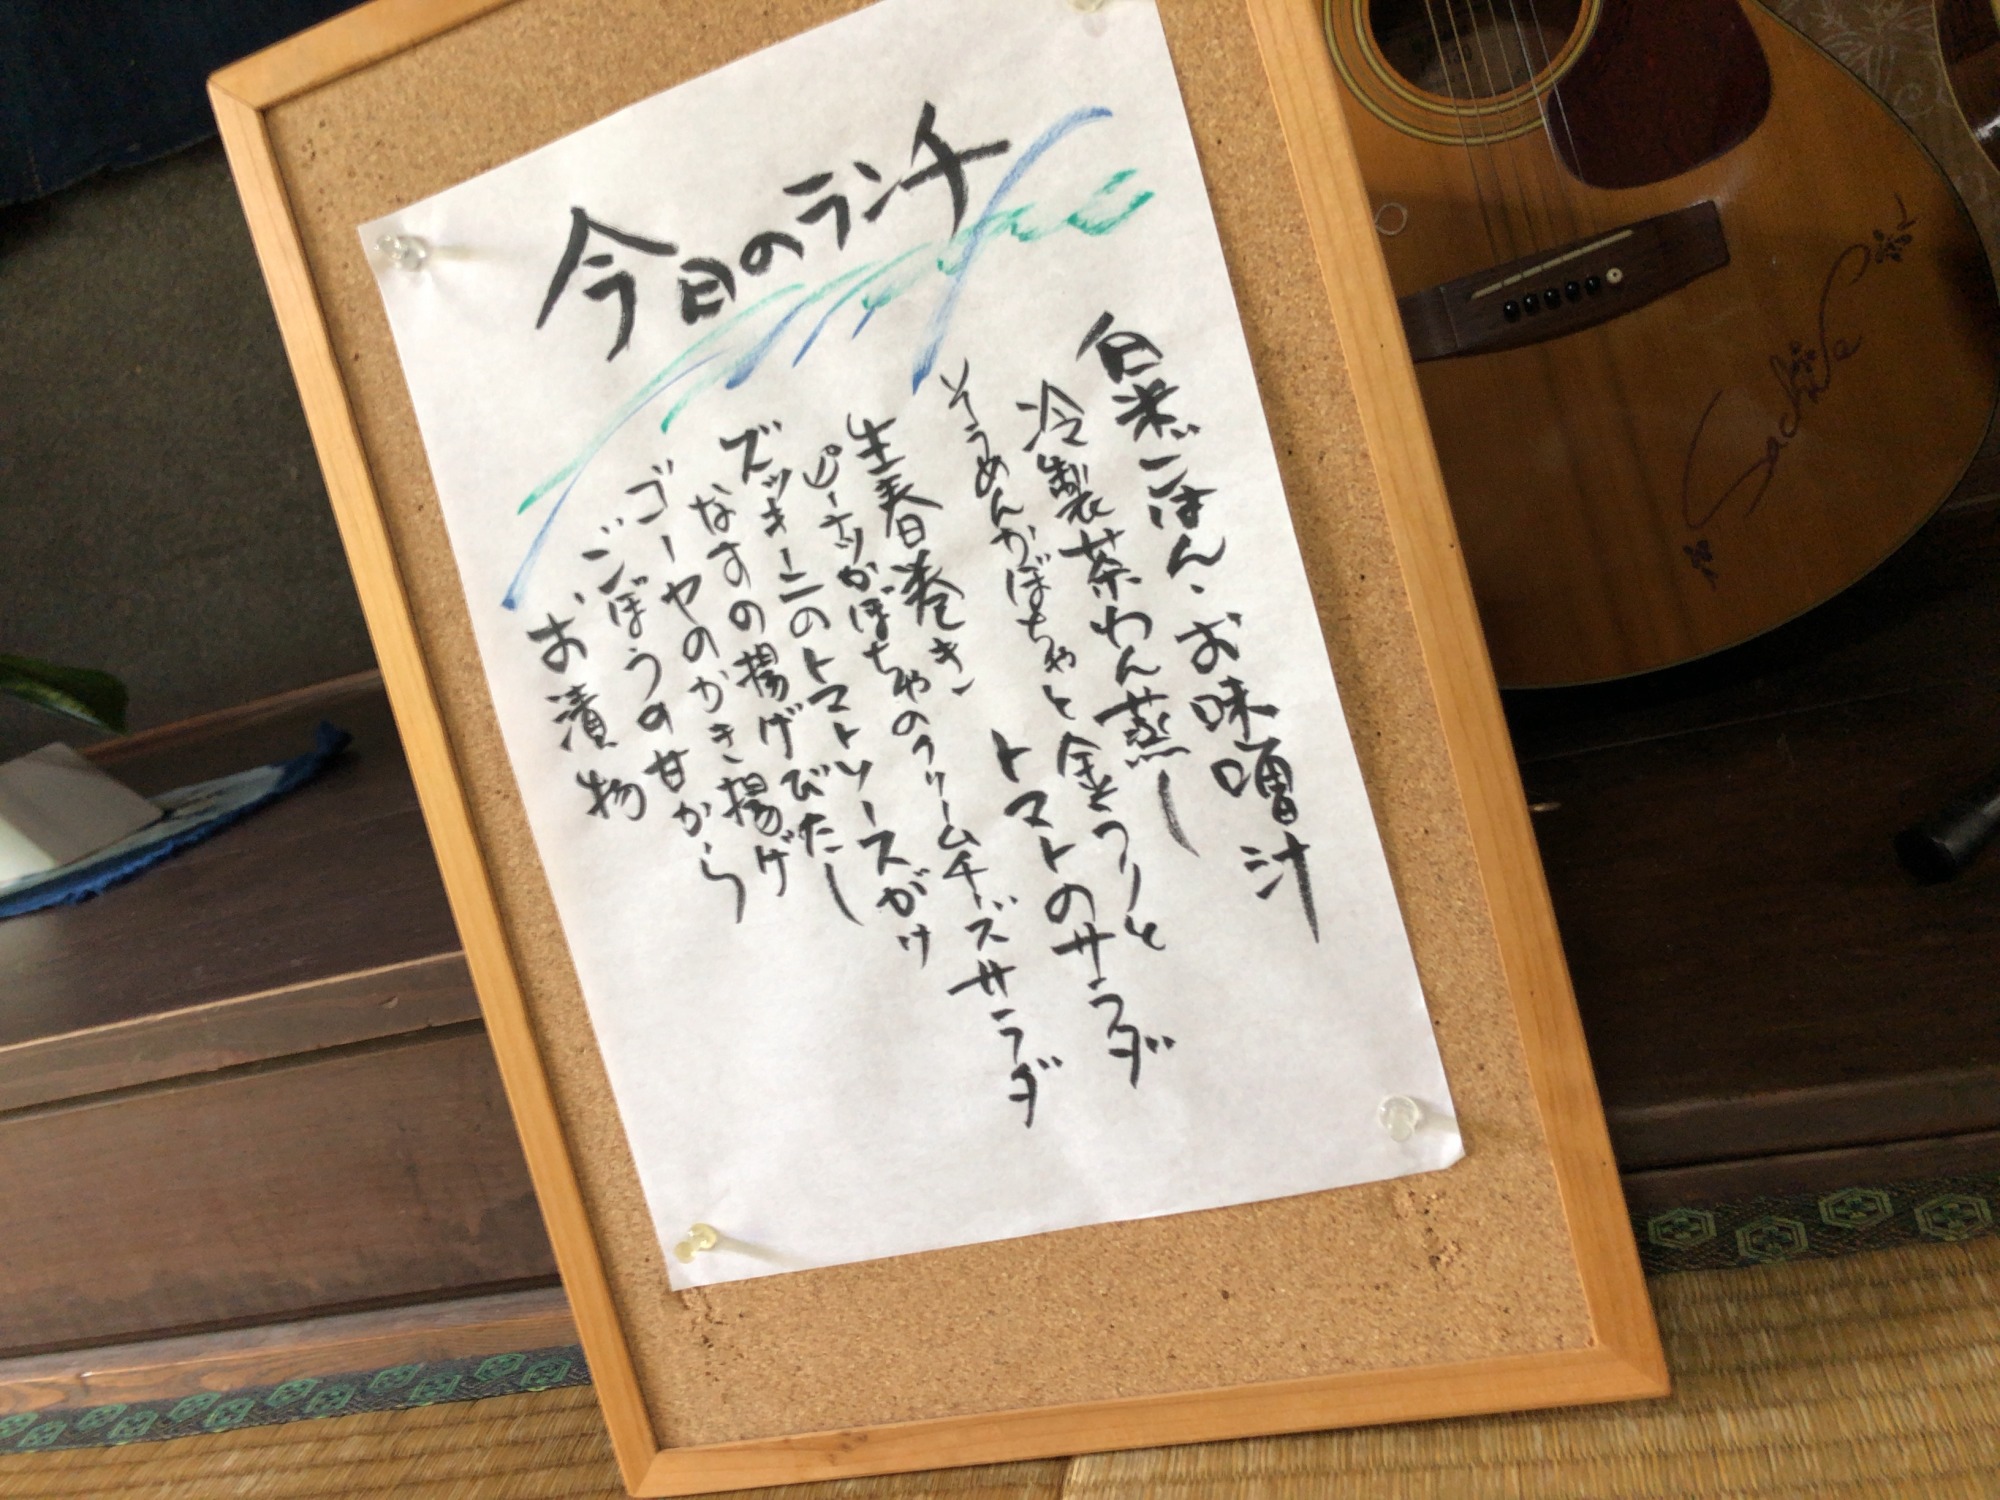 今日のランチ
白米ごはん、お味噌汁
冷製茶わん蒸し
そうめんかぼちゃと金うりと
トマトのサラダ
生春巻き
ピーナツかぼちゃのクリームチーズサラダ
ズッキーニのトマトソースがけ
なすの揚げびたし
ゴーヤのかき揚げ
ごぼうの甘から
お漬物
Sachiko